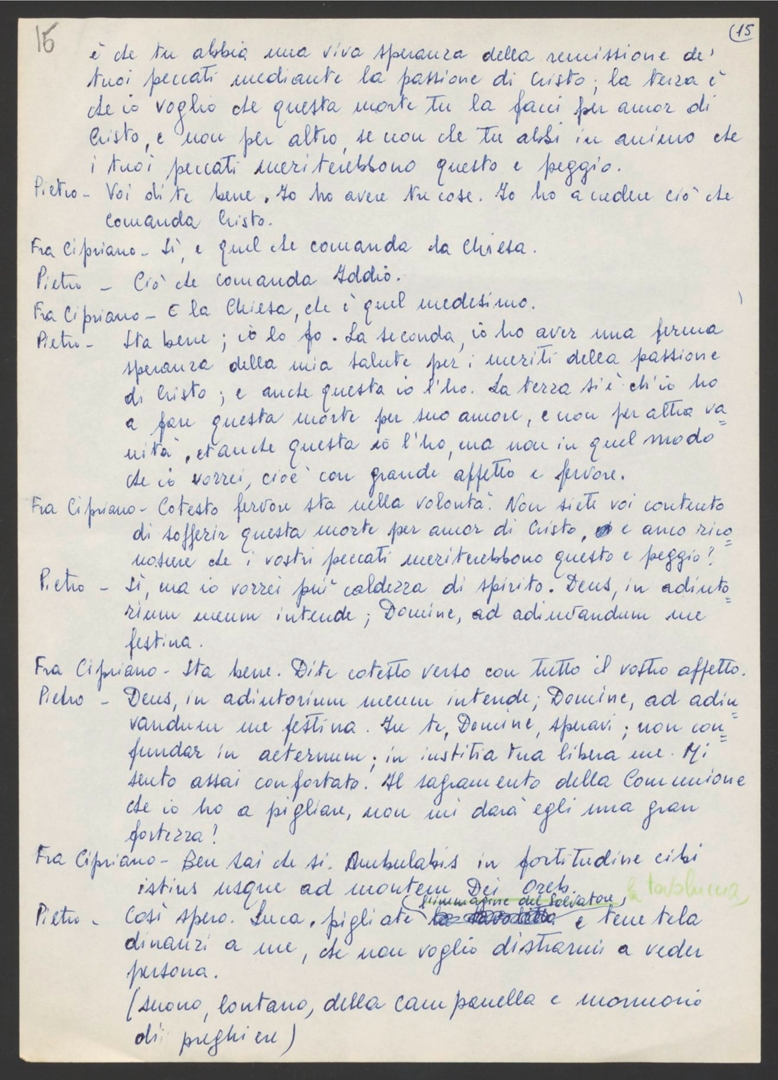 15
(15
è che tu abbia una viva speranza della remissione de'
tuoi peccati mediante la passione di Cristo; la terza è
che io voglio che questa morte tu la facci per amor di
Cristo, e non per altro, se non che tu abbi in animo che
i tuoi peccati meriterebbono questo e peggio.
Pietro - Voi dite bene. Io ho avere tre cose. Io ho a credere ciò che
comanda Cristo.
Fra Cipriano - Sì, e quel che comanda la Chiesa.
Pietro - Ciò che comanda Iddio.
Fra Cipriano - E la Chiesa, che è quel medesimo.
Pietro - Sta bene; io lo fo. La seconda, io ho aver una ferma
speranza della mia salute per i meriti della passione
di Cristo; e anche questa io l'ho. La terza si è ch'io ho
a fare questa morte per suo amore, e non per altra va=
nità, et anche questa io l'ho, ma non in quel modo
che io vorrei, cioè con grande affetto e fervore.
Fra Cipriano - Cotesto fervore sta nella volontà. Non siete voi contento
di sofferir questa morte per amor di Cristo, e anco rico=
noscere che i vostri peccati meriterebbono questo e peggio?
Pietro - Sì, ma io vorrei più caldezza di spirito. Deus, in adiuto=
rium meum intende; Domine, ad adiuvandum me
festina.
Fra Cipriano - Sta bene. Dite cotesto verso con tutto il vostro affetto.
Pietro - Deus, in adiutorium meum intende; Domine, ad adiu=
vandum me festina. In te, Domine, speravi; non con=
fundar in aeternum; in iustitia tua libera me. Mi
sento assai confortato. Il sagramento della Comunione
che io ho a pigliare, non mi darà egli una gran
fortezza?
Fra Cipriano - Ben sai che sì. Ambulabis in fortitudine cibi
istius usque ad montem Dei Oreb.
l'immagine del Salvatore, la tavoluccia,
Pietro - Così spero. Luca, pigliate la tavoletta e tenetela
dinanzi a me, che non voglio distrarmi a veder
persona.
(suono, lontano, della campanella e mormorio
di preghiere)